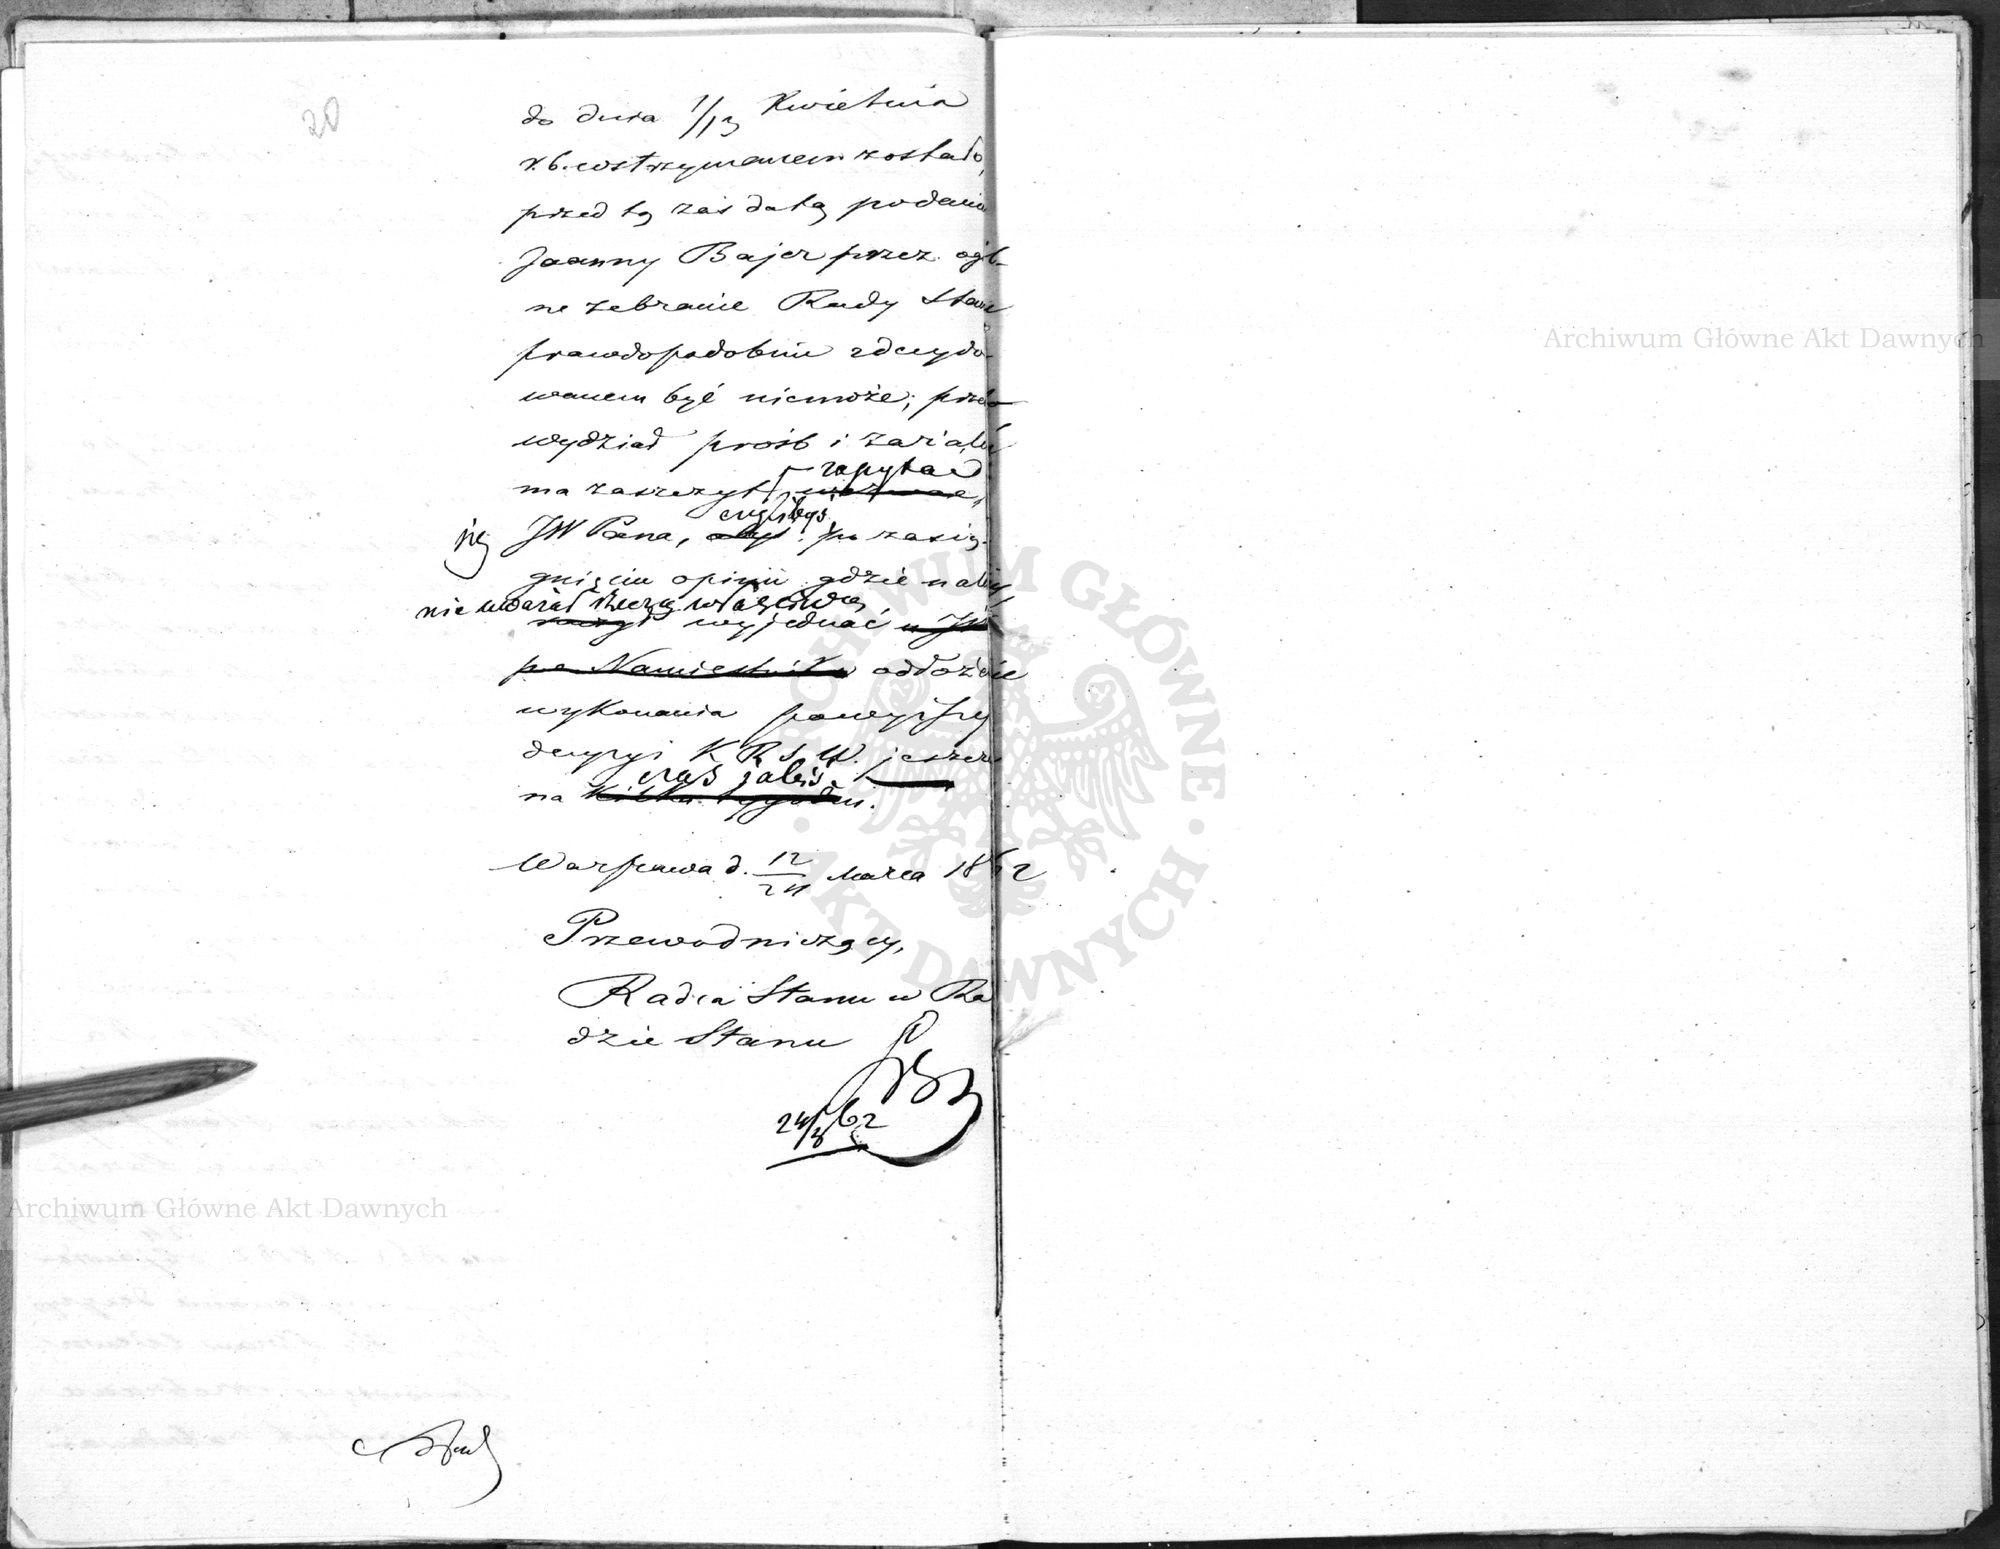 20
do dnia 1/13 Kwietnia
r.b. wstrzymanem zostało,
przed tą zaś datą podanie
Joanny Bajer przez ogól-
ne zebranie Rady Stanu
prawdopodobnie zdecydo-
wanem być niemoże; przeto
wydział próśb i zażaleń
zapytać
ma zaszczyt
czyliby
JW Pana, po zasią-
gnięciu opinii gdzie należy,
nie uważał rzeczą właściwą
wyjednać u JW
pa Namiestnika odłożenie
wykonania powyższej
decyzyi K R S W. jeszcze
czas jakiś.
na kilka tygodni.
Warszawa d. 12/24 Marca 1862
Przewodniczący,
Radca Stanu w Ra
dzie Stanu
24/3 62
Archiwum Główne Akt Dawnych
Archiwum Główne Akt Dawnych
ARCHIWUM GŁÓWNE
AKT DAWNYCH